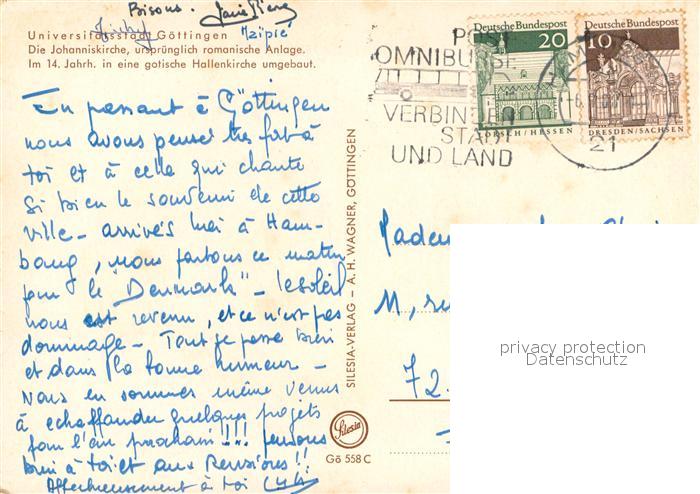 Bisous.
Universitätsstadt Göttingen
Die Johanniskirche, ursprünglich romanische Anlage.
Im 14. Jahrh. in eine gotische Hallenkirche umgebaut.
En passant à Göttingen
nous avons pensé très fort à
toi et à celle qui chante
si bien le souvenir de cette
ville - arrivés hier à Ham-
bourg, nous partons ce matin
pour le "Denmark" - le soleil
nous est revenu, et ce n'est pas
dommage - Tout se passe bien
et dans la bonne humeur -
Nous en sommes même venus
à échaffauder quelques projets
pour l'an prochain !!! pensons
bien à toi et aux Revisions !!
Affectueusement à toi
SILESIA-VERLAG – A. H. WAGNER, GÖTTINGEN
Silesia
Gö 558 C
POST
OMNIBUSSE
VERBINDEN
STADT
UND LAND
Deutsche Bundespost
20
LORSCH / HESSEN
Deutsche Bundespost
10
DRESDEN/SACHSEN
21
11, rue
72.
privacy protection
Datenschutz